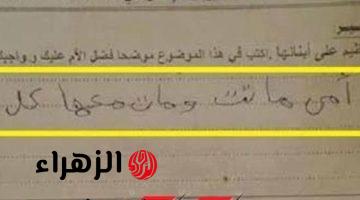 يم على أبنائها . اكتب في هذا الموضوع موضحا فضل الأم عليك وواجبك
أمى ماتت ومات معها كل
الزهراء